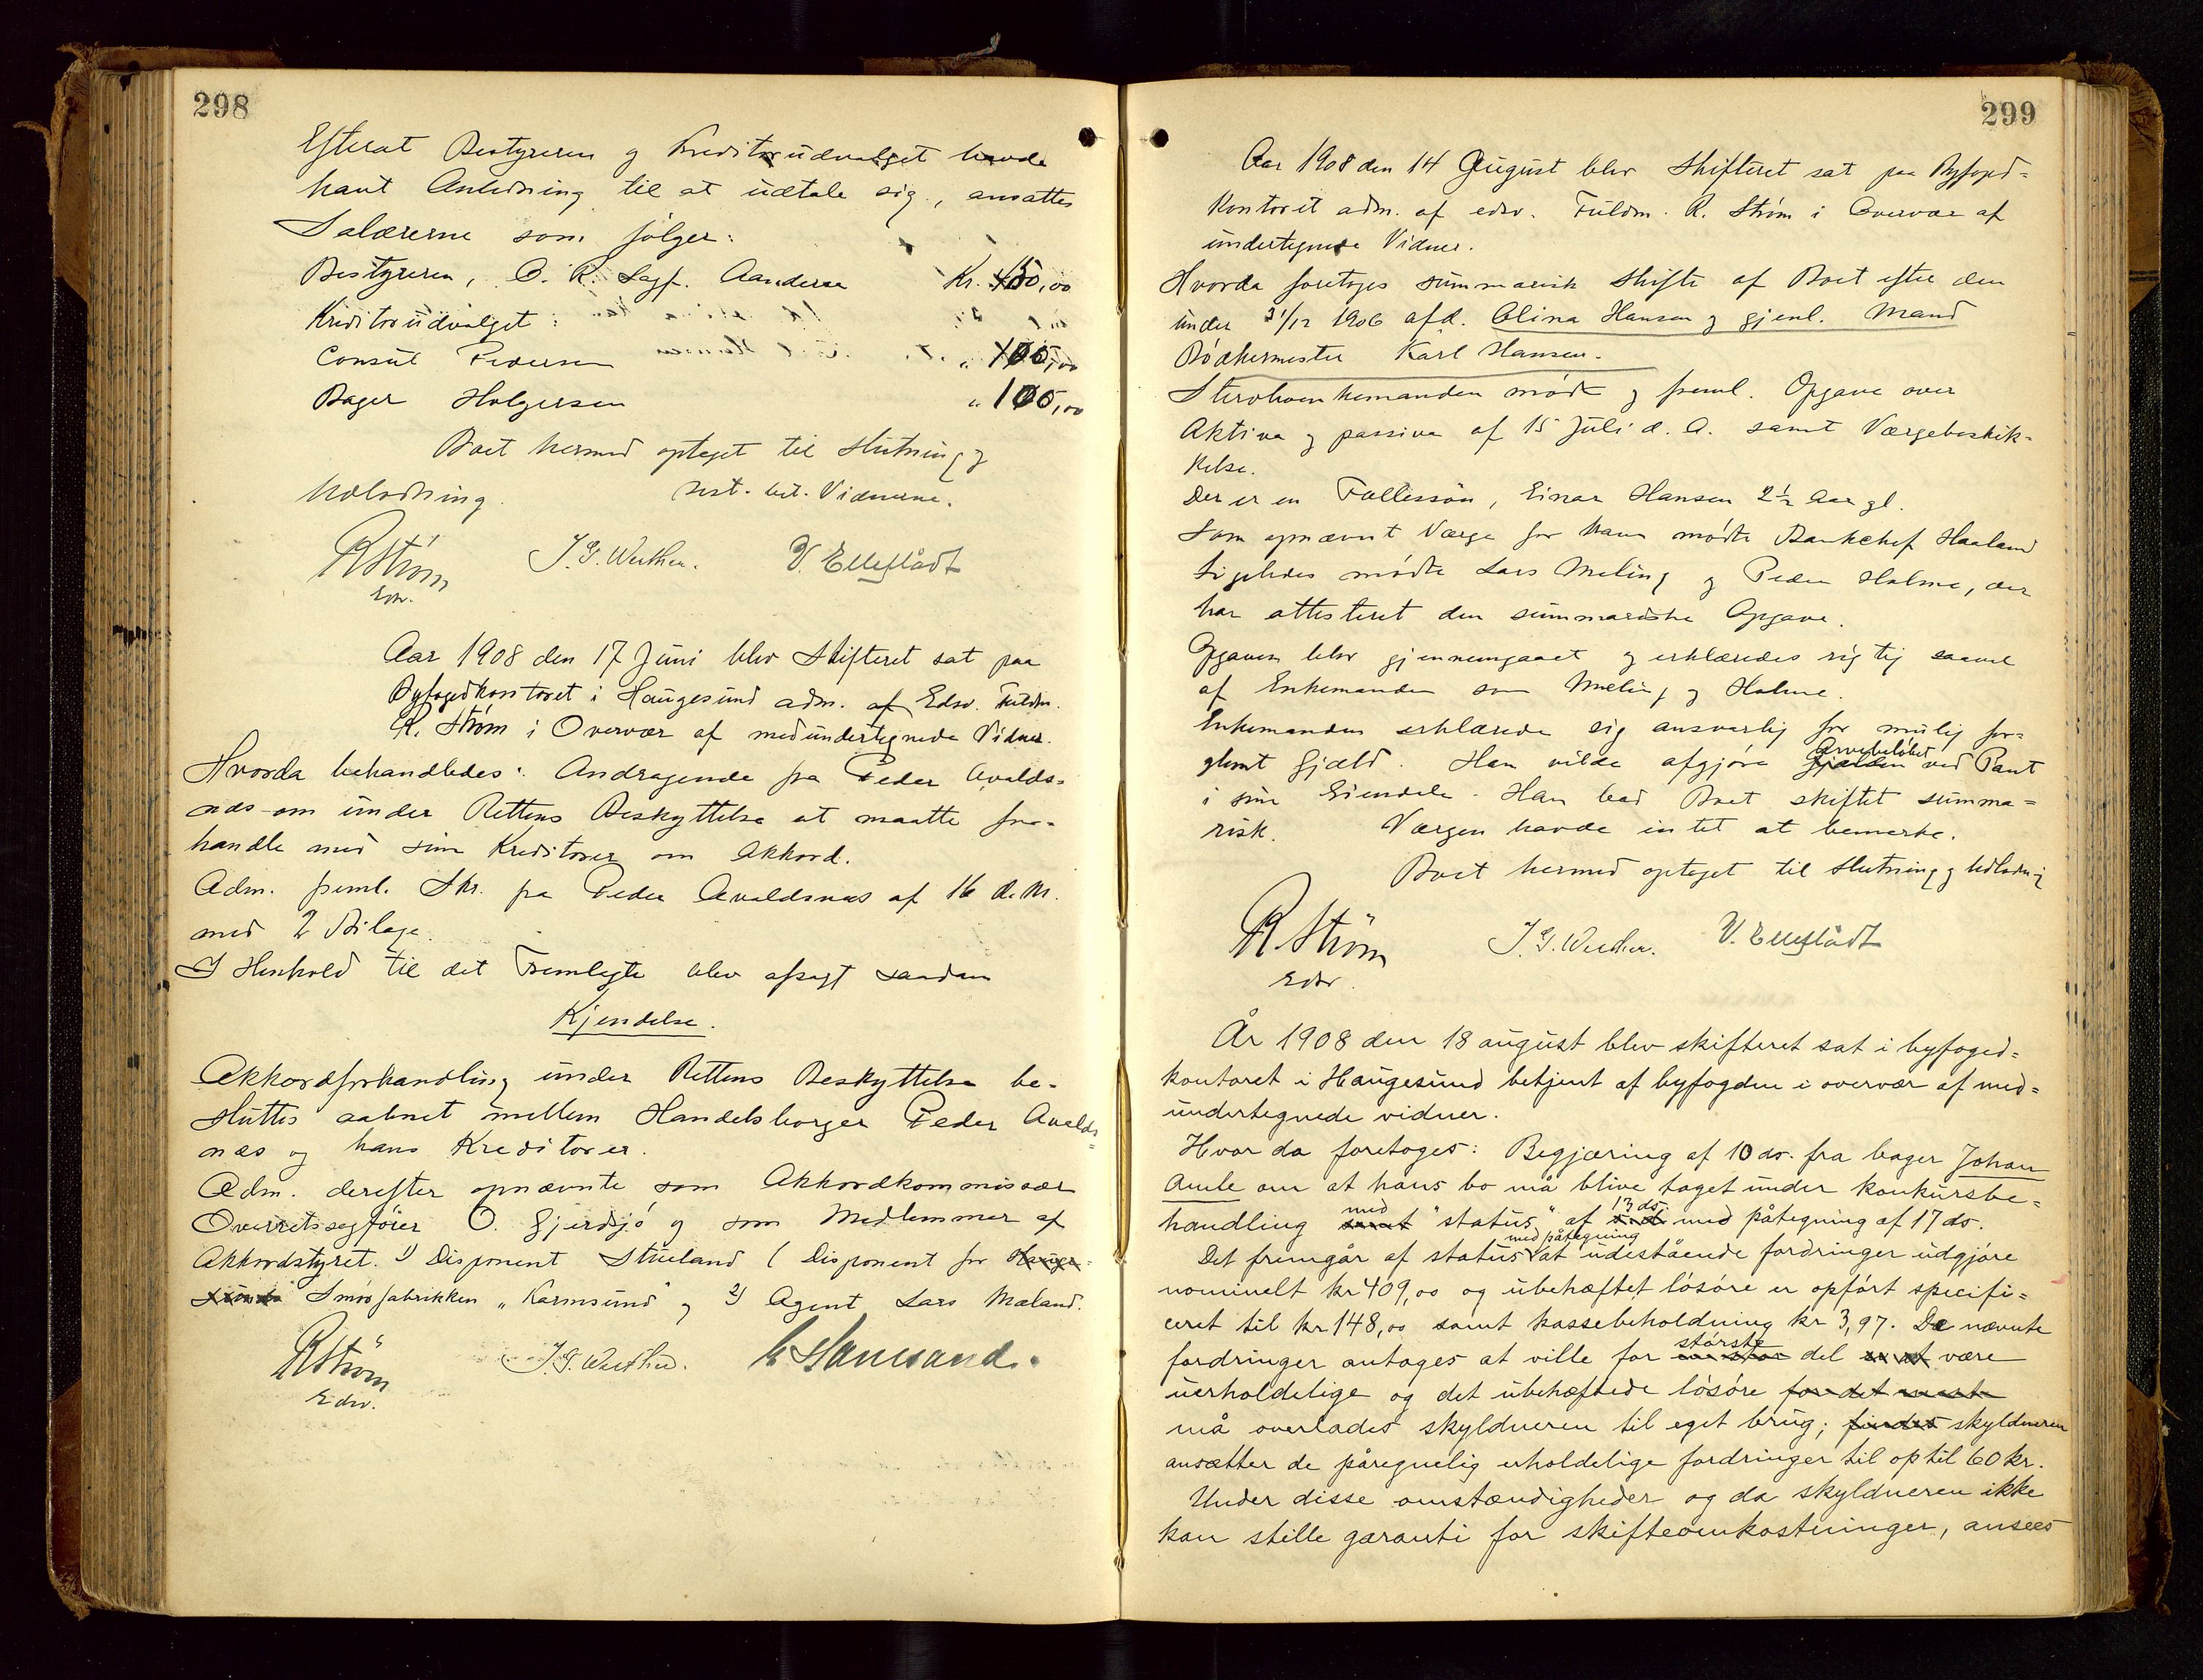 298
Efterat Bestyreren og Kreditorudvalget havde
havt Anledning til at udtale sig, ansattes
Salærerne som følger:
Bestyreren, O. R. Sagf. Aanderaa Kr. 150,00
Kreditorudvalget:
Consul Pedersen " 100,00
Bager Holgersen " 100,00
Boet hermed optaget til Slutning og
Udlodning. Sest. bet. Vidnerne.
R Strøm J. G. Werther. V. Elleflådt
Edsv.
Aar 1908 den 17 Juni blev Skifteret sat paa
Byfogedkontoret i Haugesund adm. af Edsv. Fuldm.
R. Strøm i Overvær af medundertegnede Vidner.
Hvorda behandledes: Andragende fra Peder Avalds-
næs om under Rettens Beskyttelse at maatte for-
handle med sine Kreditorer om Akkord.
Adm. freml. Skr. fra Peder Avaldsnæs af 16 d. M.
med 2 Bilage.
I Henhold til det Fremlagte blev afsagt saadan
Kjendelse.
Akkordforhandling under Rettens Beskyttelse be-
sluttes aabnet mellem Handelsborger Peder Avalds
=
næs og hans Kreditorer.
Adm. derefter opnævnte som Akkordkommissær
Overretssagfører O. Gjerdsjø og som Medlemmer af
Akkordstyret. 1) Disponent Stueland (Disponent for Hauge-
sunds Smørfabrikken "Karmsund" og 2) Agent Lars Mæland.
R Strøm J. G. Werther.
Edsv.
299
Aar 1908 den 14 August blev Skifteret sat paa Byfoged=
kontoret adm. af edsv. Fuldm. R. Strøm i Overvær af
undertegnede Vidner.
Hvorda foretoges summarisk Skifte af Boet efter den
under 31/12 1906 afd. Alina Hansen og gjenl. Mand
Bødkermester Karl Hansen.
Stervboenkemanden mødt og freml. Opgave over
Aktiva og passiva af 15 Juli d. A. samt Værgebeskik-
kelse.
Der er en Fællessøn, Einar Hansen 2½ Aar gl.
Som opnævnt Værge for ham mødte Bankchef Haaland
Ligeledes mødte Lars Meling og Peder Holme, der
har attesteret den summariske Opgave.
Opgaven blev gjennemgaaet og erklæredes rigtig saavel
af Enkemanden som Meling og Holme.
Enkemanden erklærede sig ansvarlig for mulig for=
Arvebeløbet
glemt Gjæld. Han vilde afgjøre Gjælden ved Pant
i sine Eiendele. Han bad Boet skiftet summa=
risk. Værgen havde intet at bemerke.
Boet hermed optaget til Slutning og Udlodning
R Strøm J. G. Werther. V. Elleflådt
Edsv.
År 1908 den 18 august blev skifteret sat i byfoged=
kontoret i Haugesund betjent af byfogden i overvær af med=
undertegnede vidner.
Hvor da foretoges: Begjæring af 10 ds. fra bager Johan
Amle om at hans bo må blive taget under konkursbe=
med 13 ds.
handling samt "status" af s. d. med påtegning af 17 ds.
med påtegning
Det fremgår af status at udestående fordringer udgjøre
nominelt kr 409,00 og ubehæftet løsøre er opført specifi=
ceret til kr 148,00 samt kassebeholdning kr 3,97. De nævnte
største
fordringer antages at ville for en stor del være
uerholdelige og det ubehæftede løsøre for det meste
må overlades skyldneren til eget brug; findes skyldneren
ansætter de påregnelig erholdelige fordringer til optil 60 kr.
Under disse omstændigheder og da skyldneren ikke
kan stille garanti for skifteomkostninger, ansees